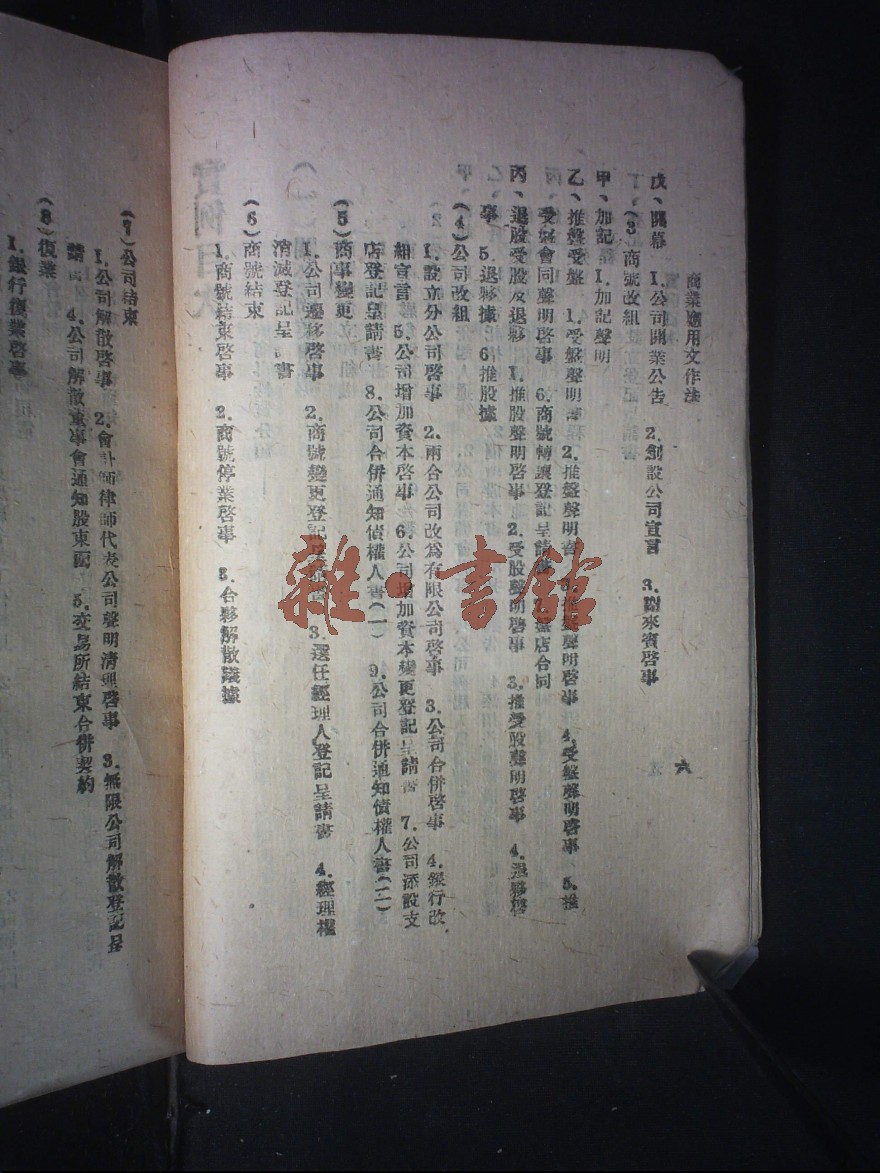 商業應用文作法
六
戊、開幕 1.公司開業公告 2.創設公司宣言 3.謝來賓啓事
(3)商號改組
甲、加記 1.加記聲明
乙、推盤受盤 1.受盤聲明 2.推盤聲明書 3.推 聲明啓事 4.受盤聲明啓事 5.推
受 會同聲明啓事 6.商號轉讓登記呈請 盤店合同
丙、退股受股及退夥 1.推股聲明啓事 2.受股聲明啓事 3.推受股聲明啓事 4.退夥聲
事 5.退夥據 6推股據
(4)公司改組
1.設立分公司啓事 2.兩合公司改爲有限公司啓事 3.公司合併啓事 4.銀行改
組宣言 5.公司增加資本啓事 6.公司增加資本變更登記呈請書 7.公司添設支
店登記呈請書 8.公司合併通知債權人書(一) 9.公司合併通知債權人書(二)
(5)商事變更
1.公司遷移啓事 2.商號變更登記呈請書 3.選任經理人登記呈請書 4.經理權
消滅登記呈 書
(6)商號結束
1.商號結束啓事 2.商號停業啓事 3.合夥解散議據
(7)公司結束
1.公司解散啓事 2.會計師律師代表公司聲明清理啓事 3.無限公司解散登記呈
請 4.公司解散董事會通知股東函 5.交易所結束合併契約
(8)復業
1.銀行復業啓事
雜·書館